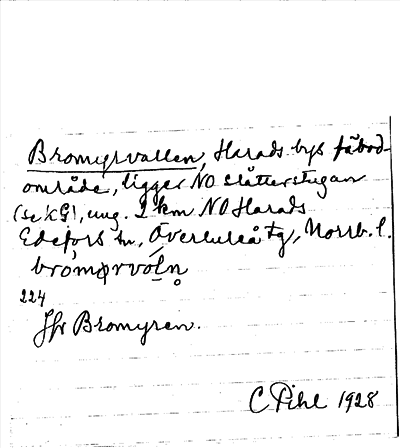 Bromyrvallen, Harads bys fäbod-
område, ligger NO slåtterstugan
(se KG), ung. 2 km NO Harads
Edefors sn, Överluleå tg, Norrb. l.
bromørvóln̥
224
Jfr Bromyren.
C Pihl 1928